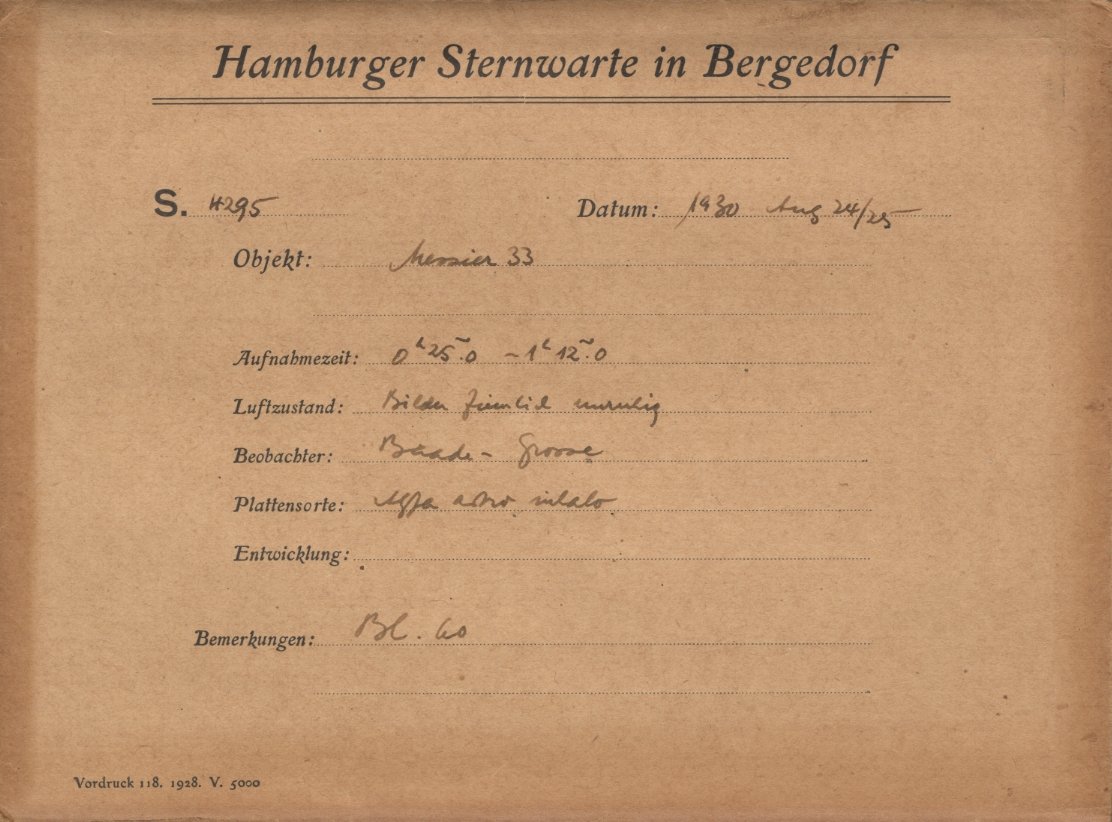 Hamburger Sternwarte in Bergedorf
S. 4295 Datum: 1930 Aug 24/25
Objekt: Messier 33
Aufnahmezeit: 0ʰ25ᵐ.0 – 1ʰ12ᵐ.0
Luftzustand: Bilder ziemlich unruhig
Beobachter: Baade - Grosse
Plattensorte: Agfa astro inhalo
Entwicklung:
Bemerkungen: Bl. 60
Vordruck 118. 1928. V. 5000